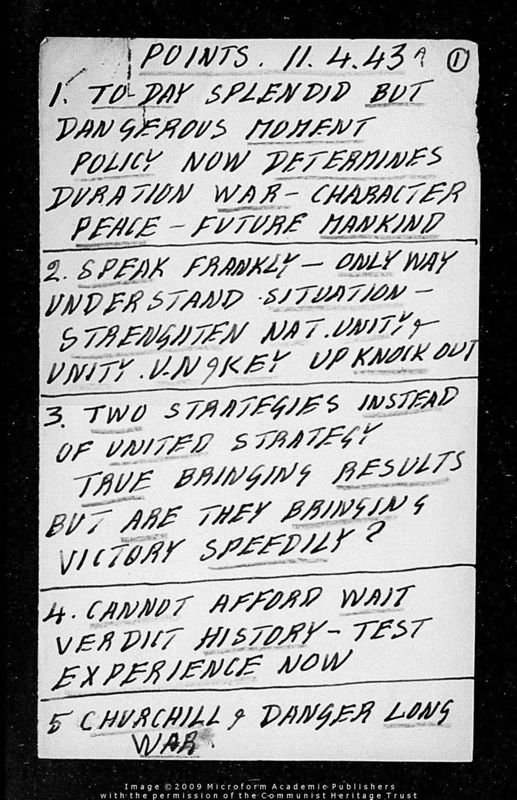 POINTS. 11.4.43 A 1
1. TO-DAY SPLENDID BUT
DANGEROUS MOMENT
POLICY NOW DETERMINES
DURATION WAR - CHARACTER
PEACE - FUTURE MANKIND
2. SPEAK FRANKLY - ONLY WAY
UNDERSTAND SITUATION -
STRENGHTEN NAT. UNITY &
UNITY. U.N & KEY UP KNOCK OUT
3. TWO STRATEGIES INSTEAD
OF UNITED STRATEGY
TRUE BRINGING RESULTS
BUT ARE THEY BRINGING
VICTORY SPEEDILY?
4. CANNOT AFFORD WAIT
VERDICT HISTORY - TEST
EXPERIENCE NOW
5 CHURCHILL & DANGER LONG
WAR
Image ©2009 Microform Academic Publishers
with the permission of the Communist Heritage Trust